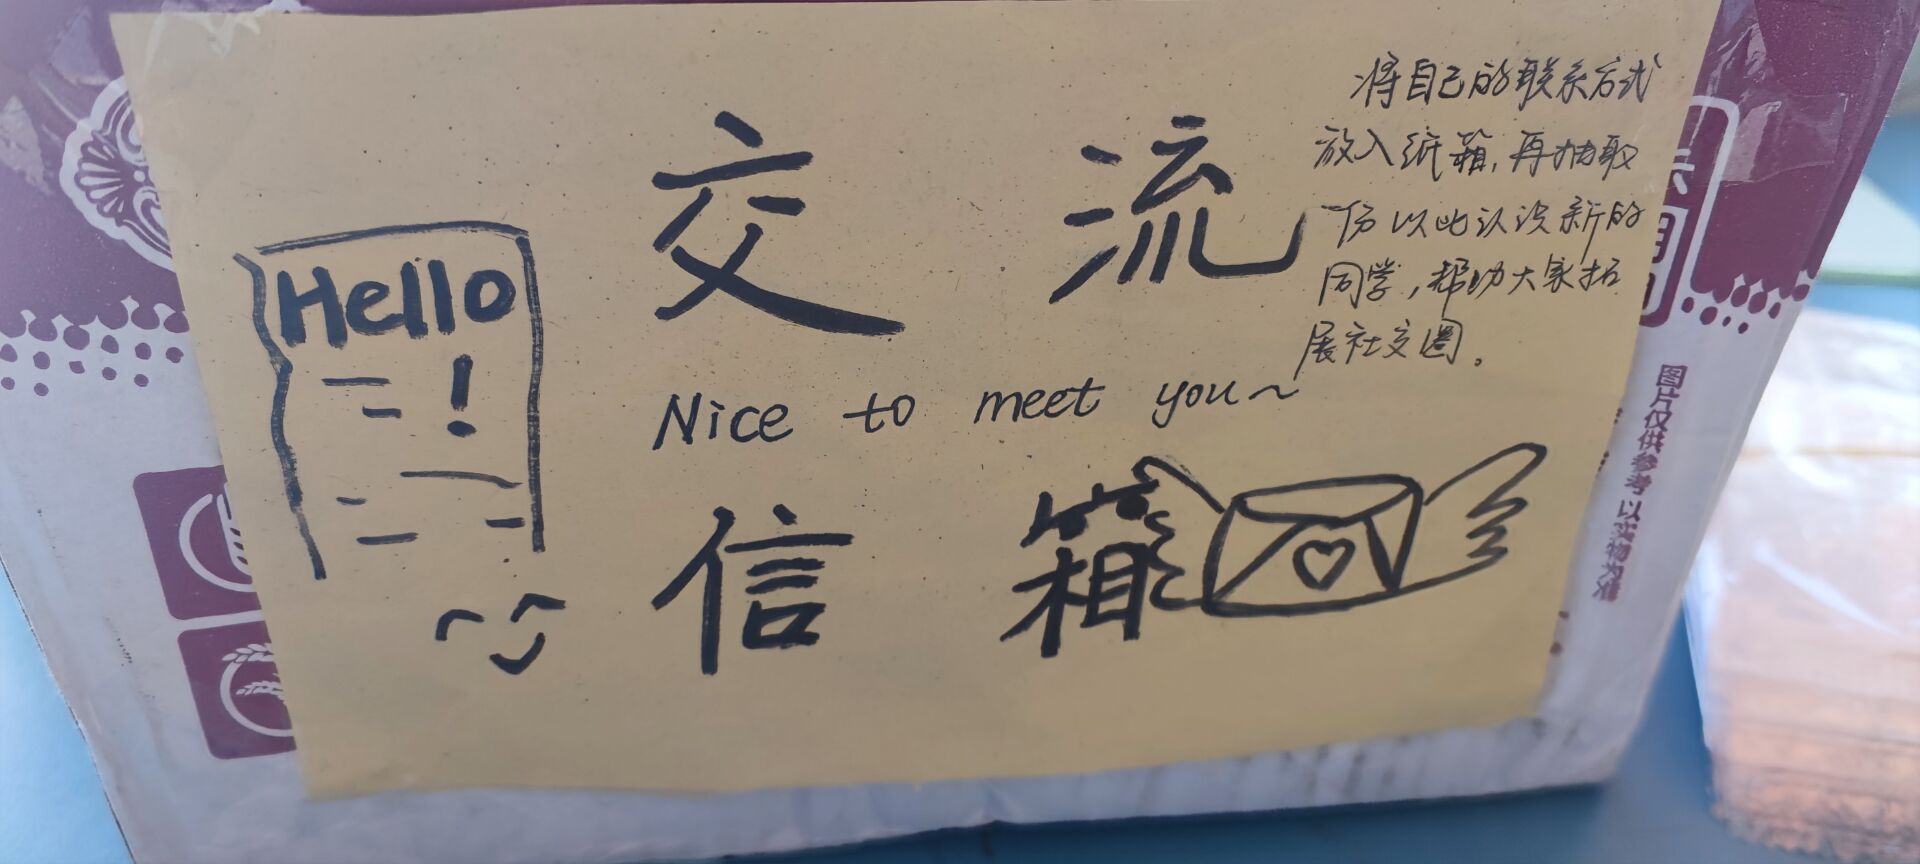 将自己的联系方式
放入纸箱,再抽取
一份以此认识新的
同学,帮助大家拓
展社交圈。
交流
Hello
!
Nice to meet you~
信箱
图片仅供参考 以实物为准